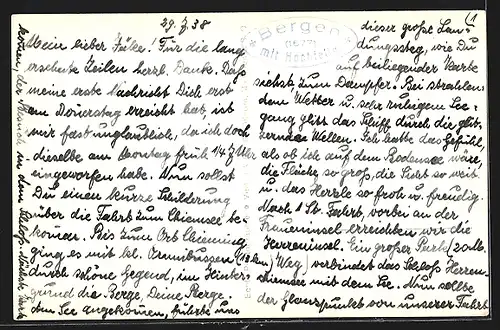 29.7.38
Mein lieber Fritz. Für die lang
ersehnte Zeilen herzl. Dank. Daß
meine erste Nachricht Dich erst
am Donerstag erreicht hat, ist
mir fast unglaublich, da ich doch
dieselbe am Montag früh 1/4 7 Uhr
eingeworfen habe. Nun sollst
Du einen kurze Schilderung
über die Fahrt zum Chiemsee be-
komen. Bis zum Ort Chieming
ging es mit kl. Omnibussen (18 km)
durch schöne Gegend, im Hinter-
grund die Berge, Deine Berge.
Am See angekommen, führte uns
(1
dieser große Lan-
dungssteg, wie Du
auf beiliegender Karte
siehst, zum Dampfer. Bei strahlen-
dem Wetter u. sehr ruhigem See-
gang glitt das Schiff durch die glit-
zernden Wellen. Ich hatte das Gefühl,
als ob ich auf dem Bodensee wäre,
die Fläche so groß, die Sicht so weit
u. das Herzle so froh u. freudig.
Nach 1 St. Fahrt, vorbei an der
Fraueninsel erreichten wir die
Herreninsel. Ein großer Park, 20 Min.
Weg, verbindet das Schloß Herren-
chiemsee mit dem See. Nun sollte
der Glanzpunkt von unserer Fahrt
komen, der Besuch in dem Schloß.
Bergen